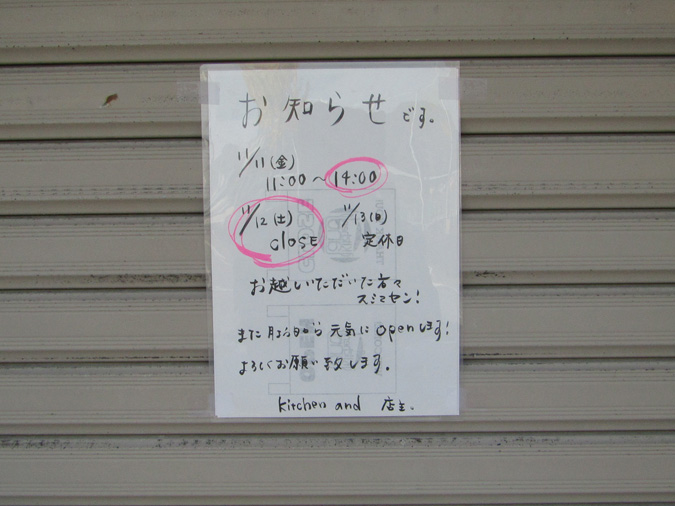 お知らせです。
11/11(金)
11:00～14:00
11/12(土) 11/13(日)
close 定休日
お越しいただいた方々
スミマセン!
また月よう日から元気にopenします!
よろしくお願い致します。
kitchen and 店主.